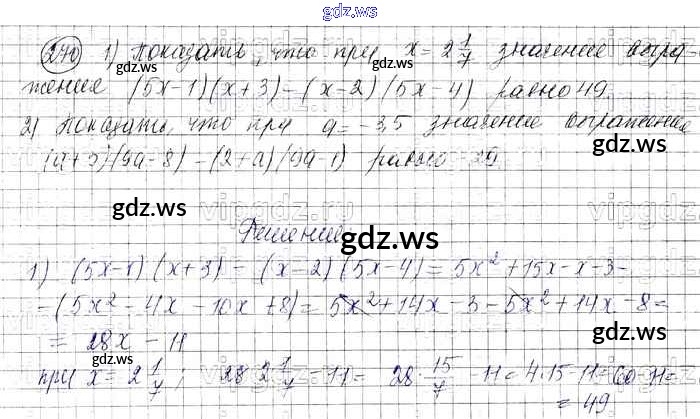 gdz.ws
270) 1) Показать, что при x = 2 1/7 значение выра-
жение (5x-1)(x+3)-(x-2)(5x-4) равно 49.
2) Показать, что при a = -3,5 значение выражение
(a+3)(9a-8)-(2+a)(9a-1) равно -29
gdz.ws vipgdz.ru
Решение
gdz.ws
1) (5x-1)(x+3) - (x-2)(5x-4) = 5x² + 15x - x - 3 -
-(5x² - 4x - 10x + 8) = 5x² + 14x - 3 - 5x² + 14x - 8 =
= 28x - 11
gdz.ws gdz.ws
при x = 2 1/7 ; 28·2 1/7 - 11 = 28 · 15/7 - 11 = 4·15-11 = 60-11 =
= 49
gdz.ws